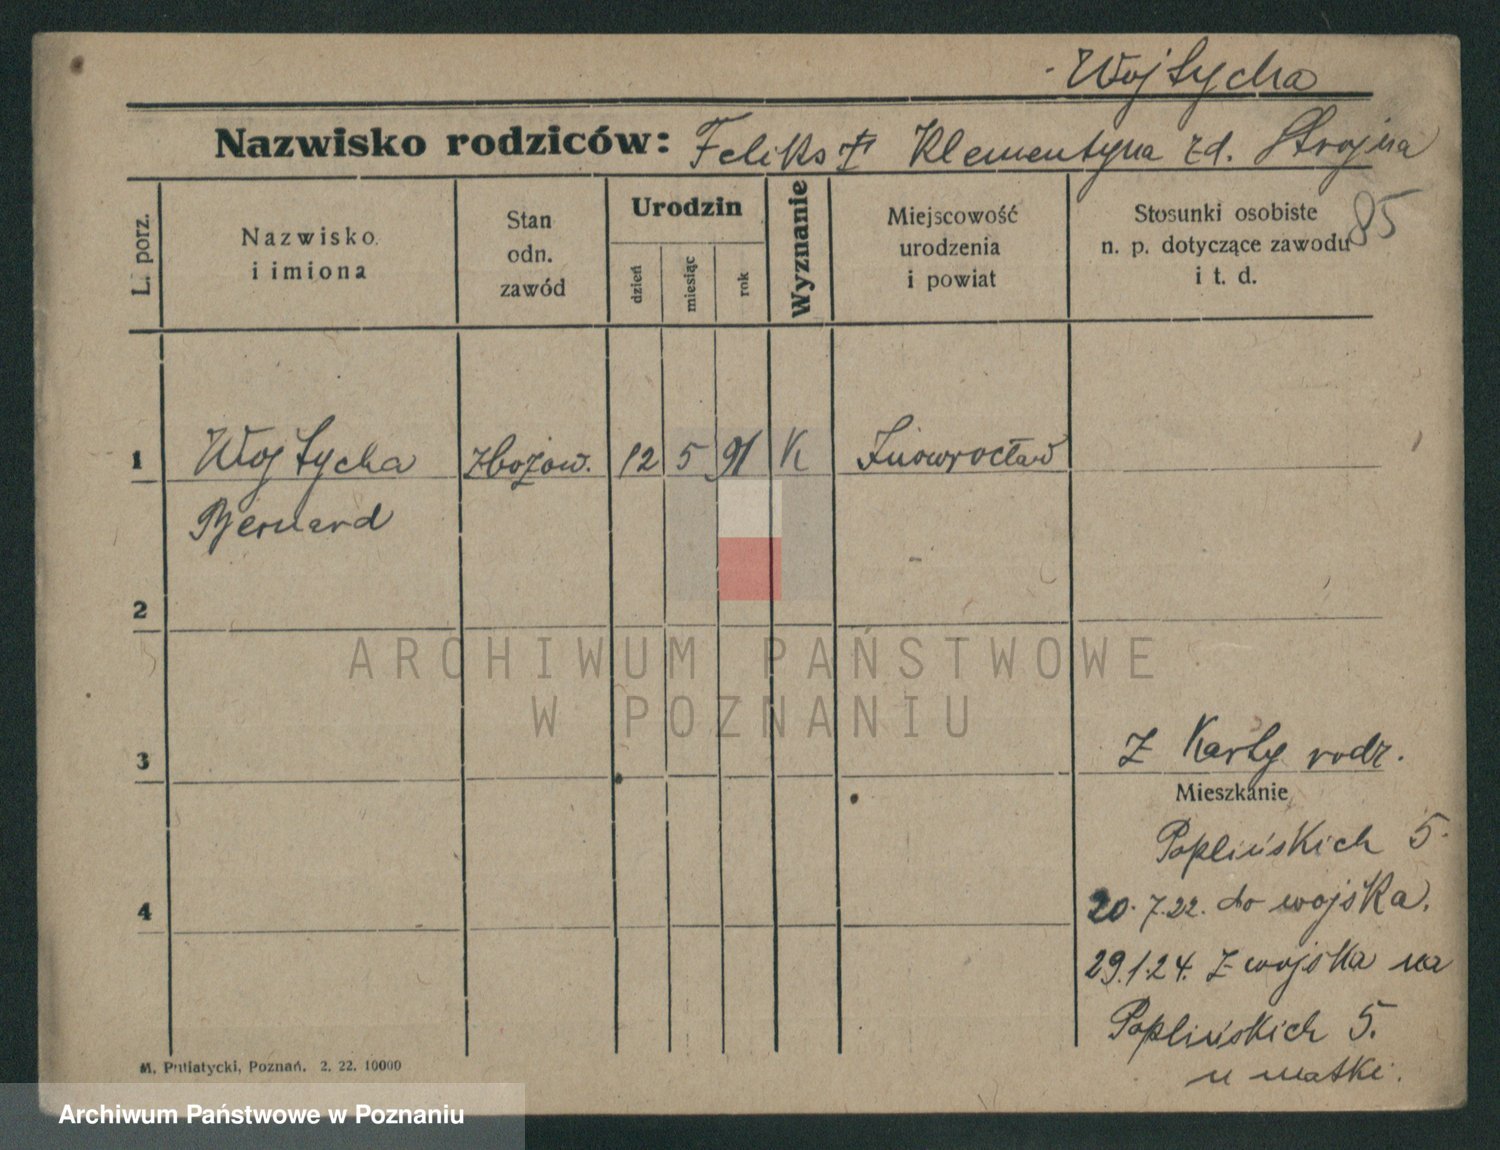 Wojtycha
Nazwisko rodziców: Feliks † Klementyna zd. Strojna
85
L. porz.
Nazwisko
i imiona
Stan
odn.
zawód
Urodzin
dzień
miesiąc
rok
Wyznanie
Miejscowość
urodzenia
i powiat
Stosunki osobiste
n. p. dotyczące zawodu
i t. d.
1 Wojtycha zbożow. 12 5 91 K Inowrocław
Bernard
2
3
Z Karty rodz.
Mieszkanie
Poplińskich 5.
4
20.7.22. do wojska.
29.1.24. z wojska na
Poplińskich 5.
u matki.
M. Putiatycki, Poznań. 2. 22. 10000
ARCHIWUM PAŃSTWOWE
W POZNANIU
Archiwum Państwowe w Poznaniu